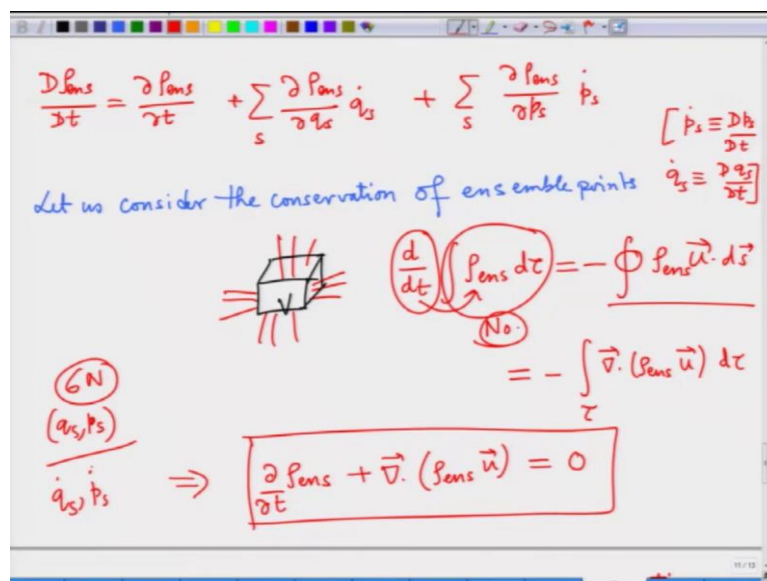 Dρens/Dt = ∂ρens/∂t + Σs ∂ρens/∂qs q̇s + Σs ∂ρens/∂ps ṗs
[ṗs ≡ Dps/Dt
q̇s ≡ Dqs/Dt]
Let us consider the conservation of ensemble points
V
d/dt ∫ ρens dτ = - ∮ ρens u⃗. ds⃗
No.
= - ∫τ ∇⃗. (ρens u⃗) dτ
6N
(qs, ps)
q̇s, ṗs
⇒ ∂/∂t ρens + ∇⃗. (ρens u⃗) = 0
11 / 13